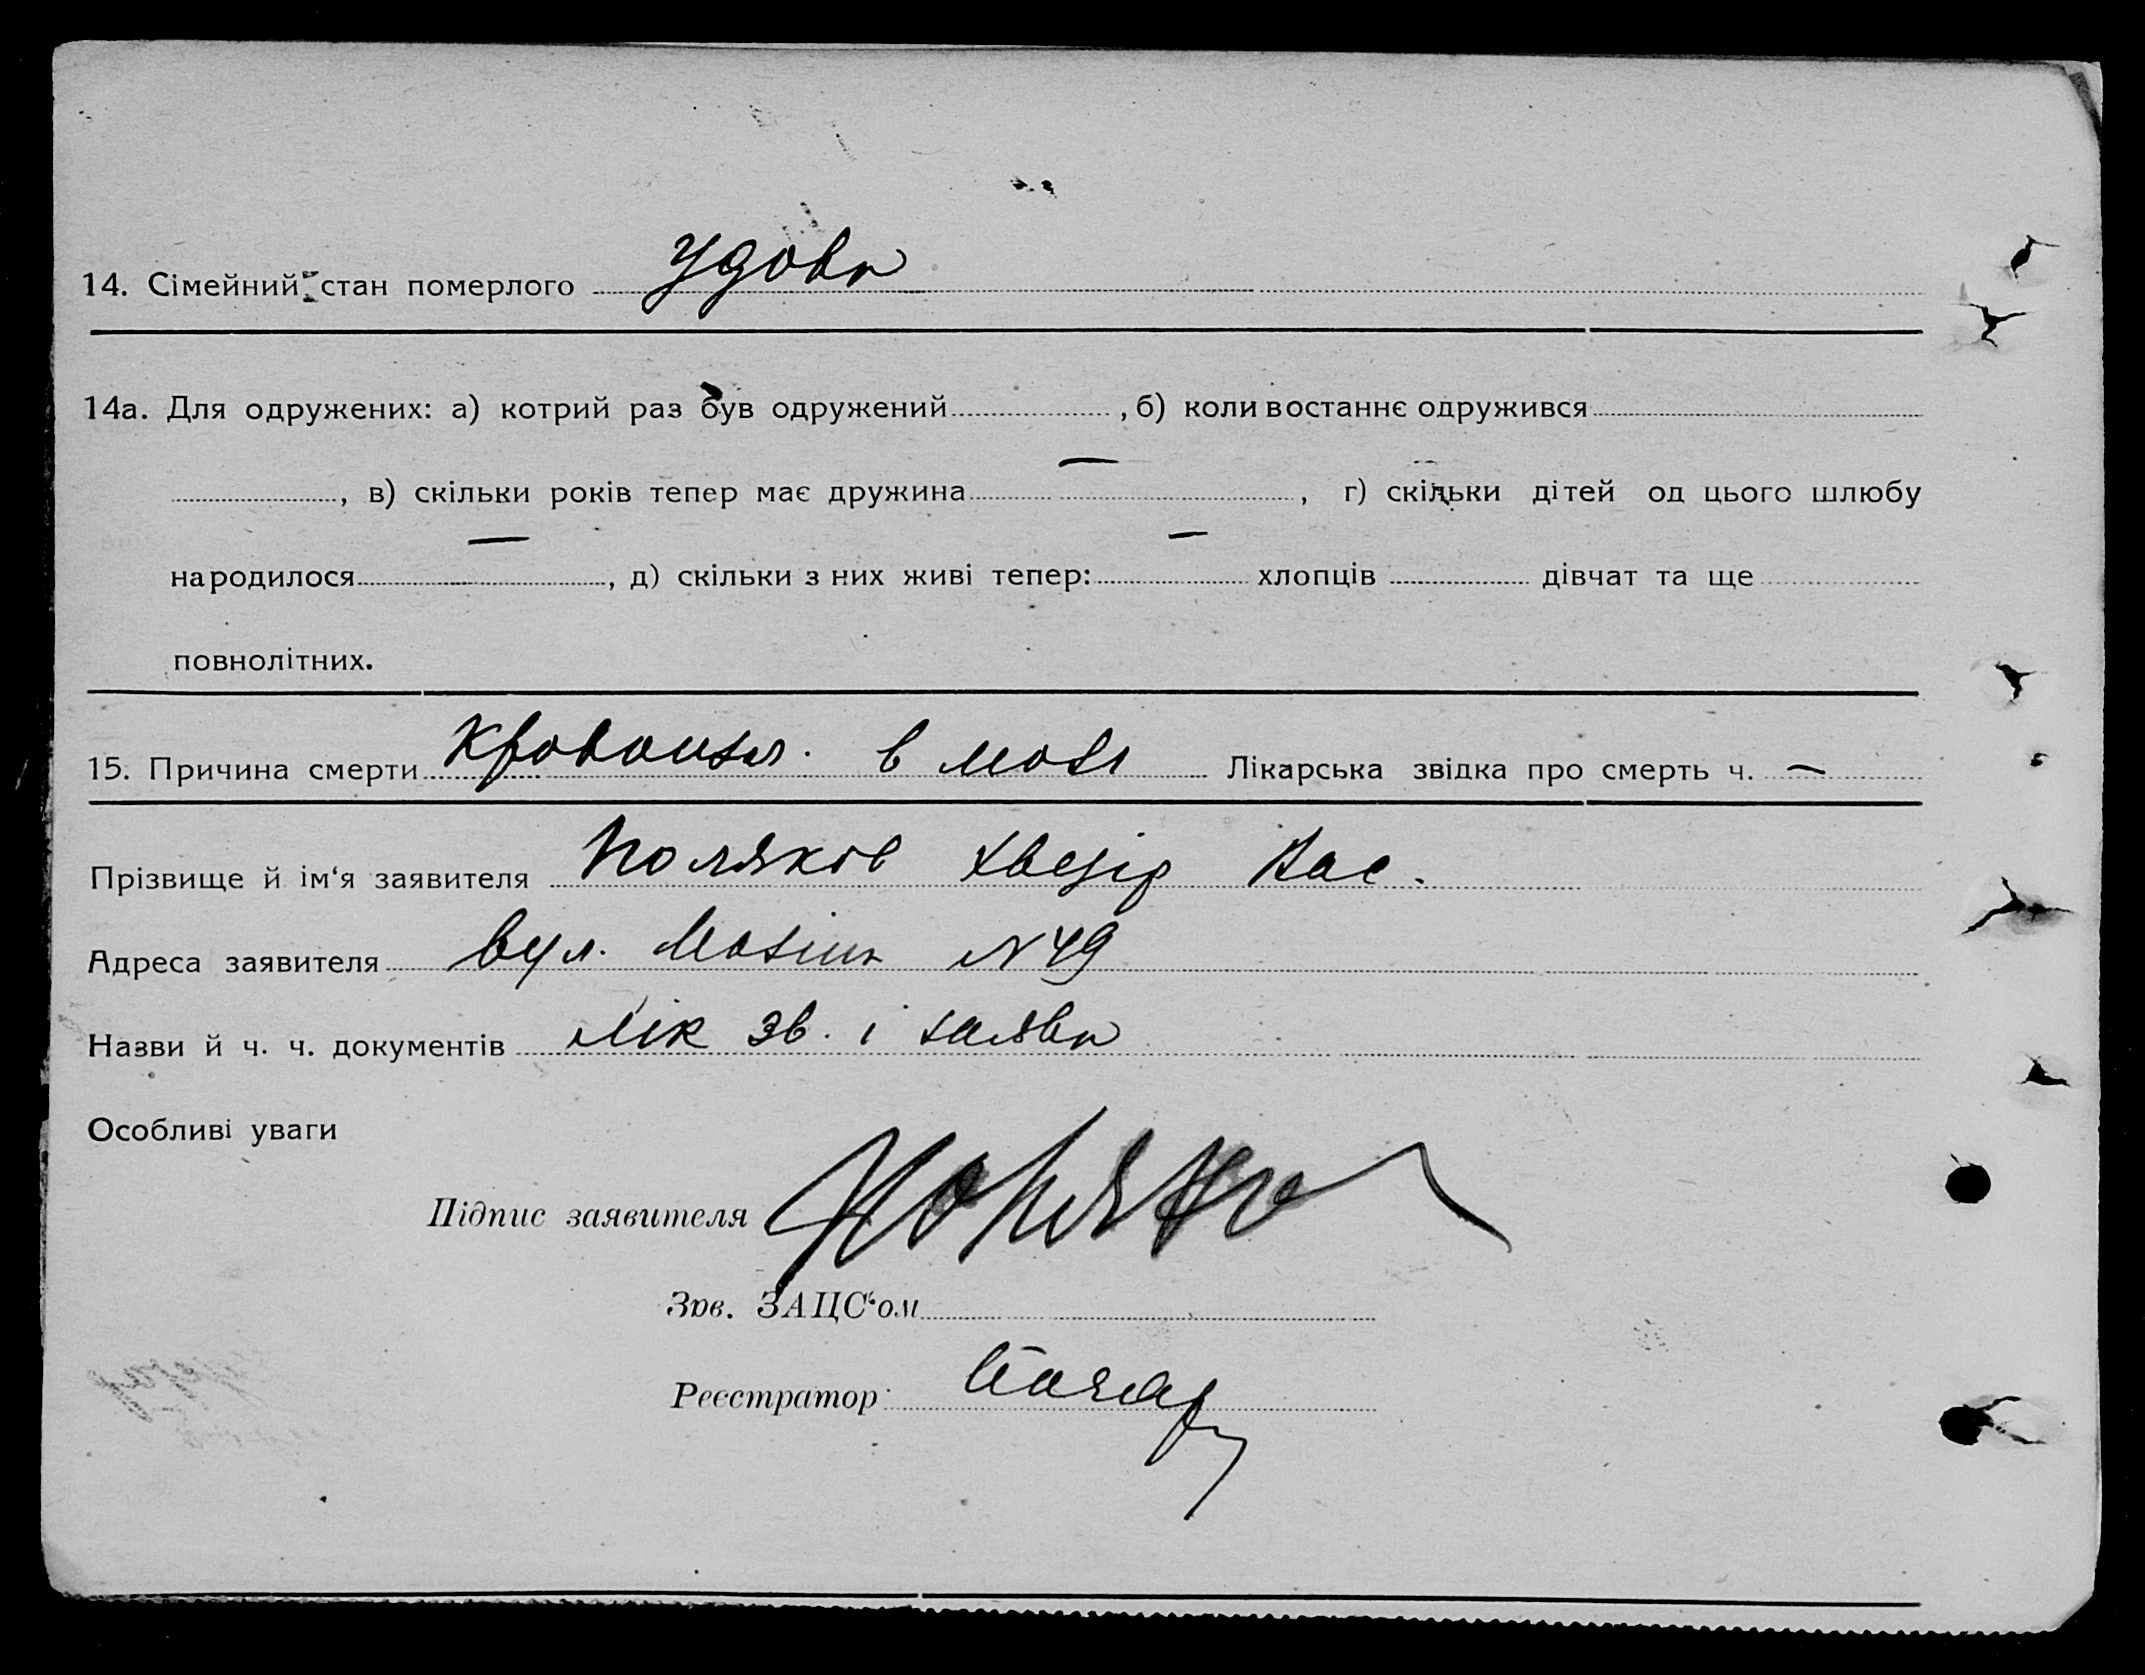 14. Сімейний стан померлого удова
14а. Для одружених: а) котрий раз був одружений , б) коли востаннє одружився
, в) скільки років тепер має дружина — , г) скільки дітей од цього шлюбу
народилося — , д) скільки з них живі тепер: — хлопців дівчат та ще
повнолітних.
15. Причина смерти в Лікарська звідка про смерть ч. —
Прізвище й ім‘я заявителя Поляков Хведір Вас.
Адреса заявителя вул. N 49
Назви й ч. ч. документів лік зв. і заява
Особливі уваги
Підпис заявителя Поляков
Зав. ЗАЦС‘ом
Реєстратор